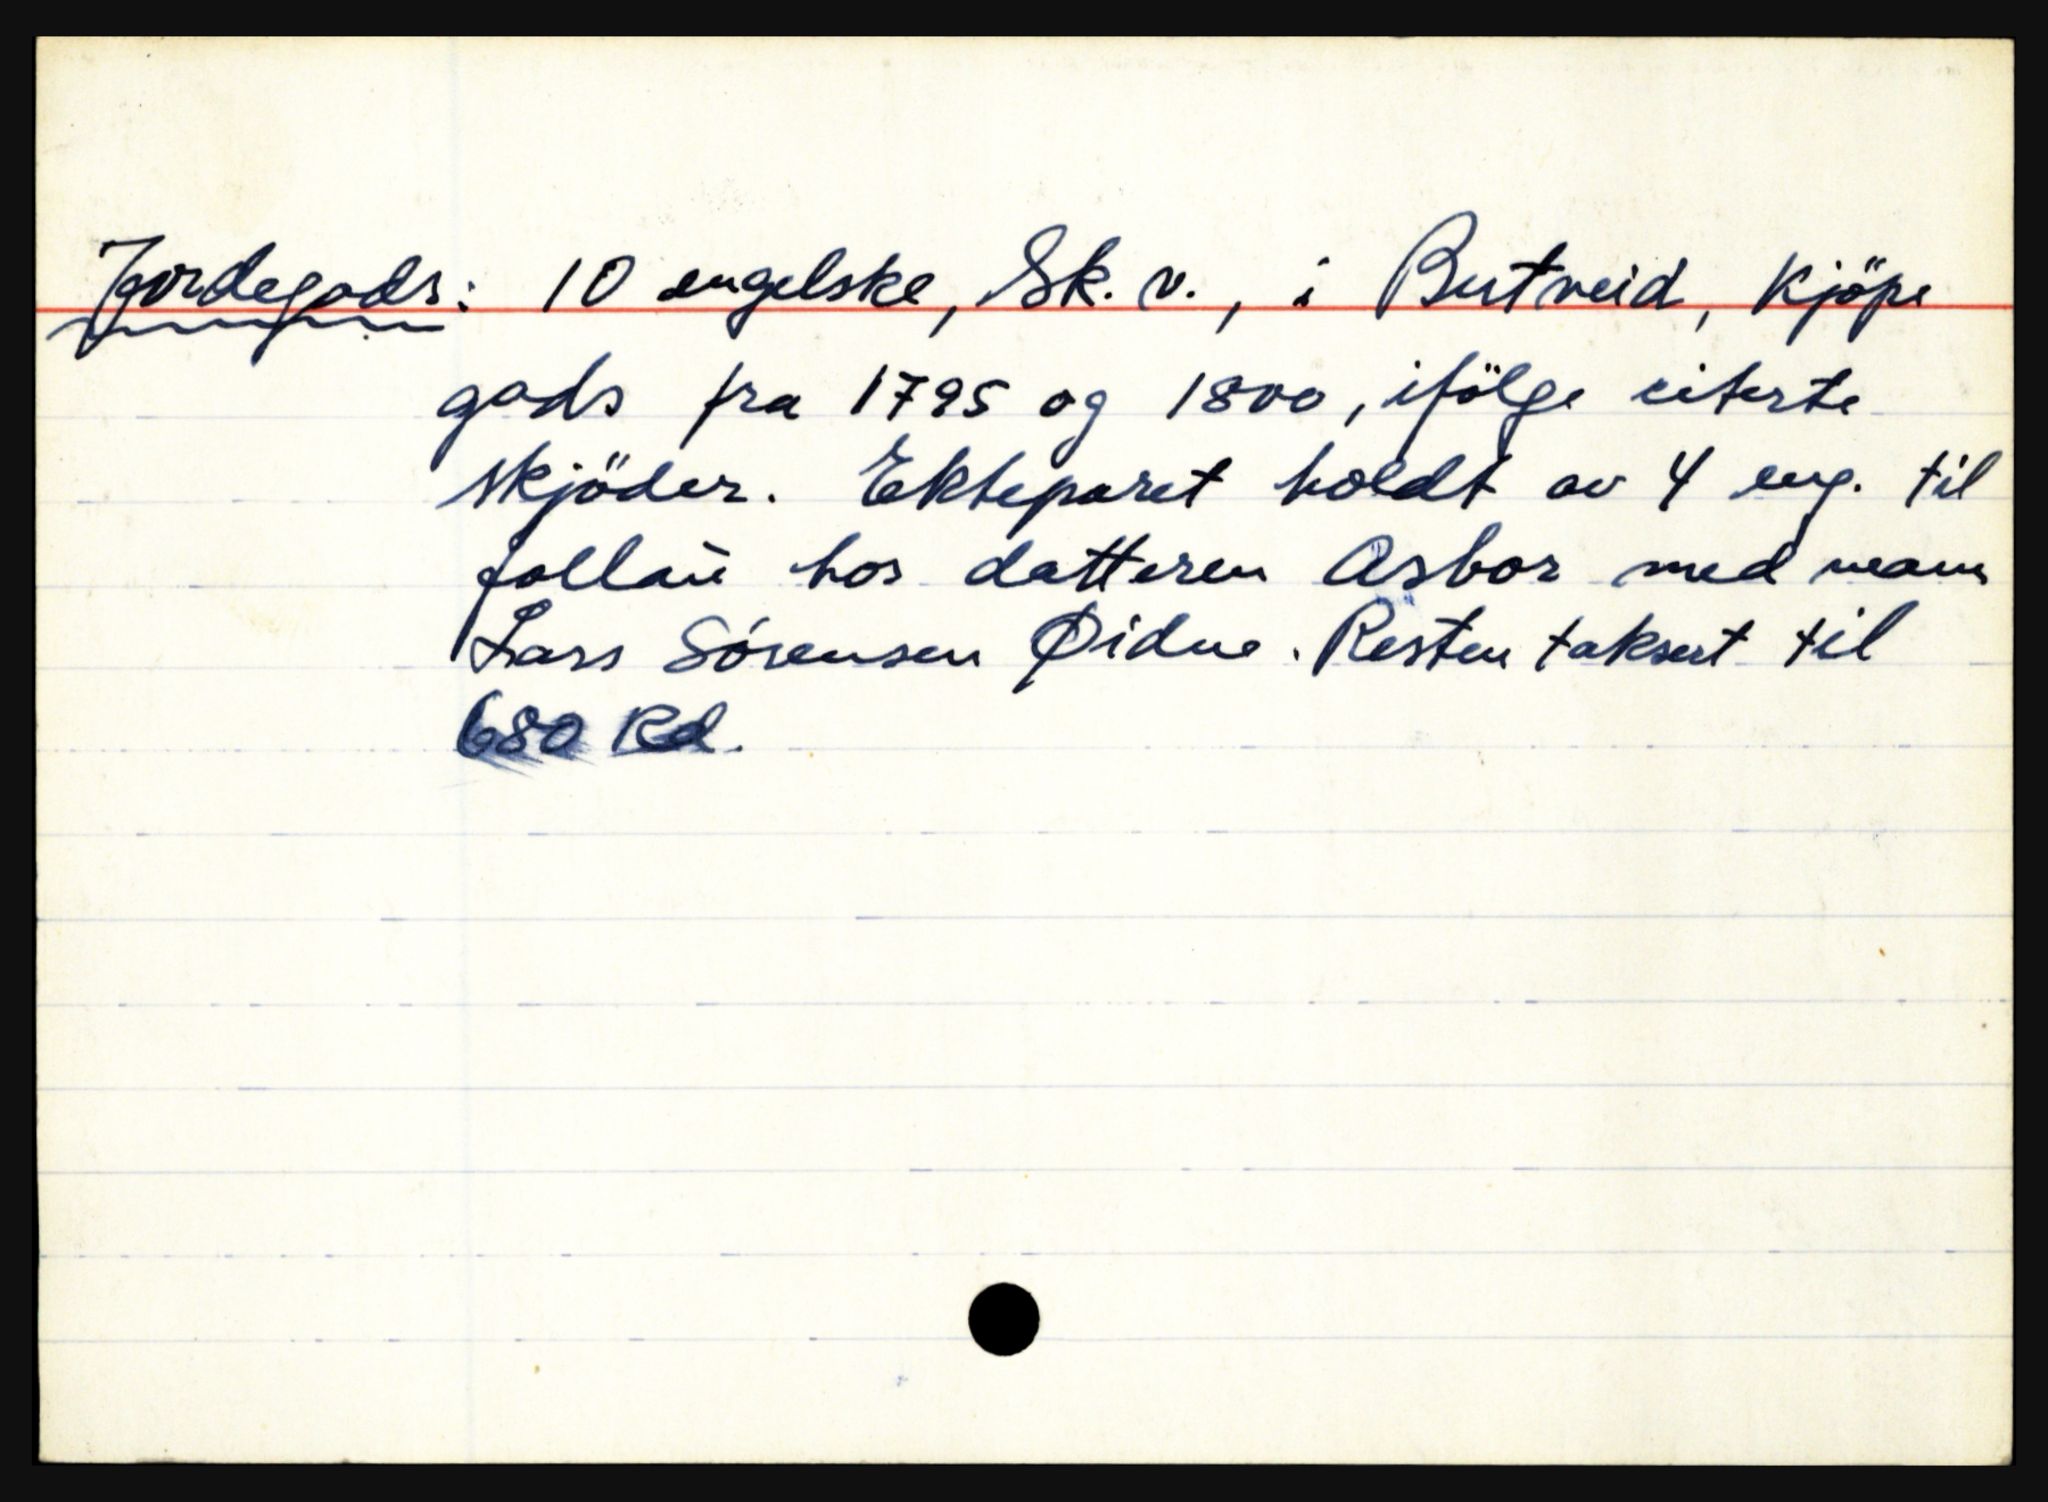 Jordegods: 10 engelske, Sk. v., i Butveid, kjöpe
gods fra 1795 og 1800, ifölge citerte
skjöder. Ekteparet holdt av 4 eng. til
follaū hos datteren Asbor med mann
Lars Sórensen Øidne. Resten taksert til
680 Rd.